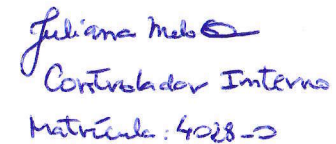 Juliana Melo
Controlador Interno
Matrícula: 4028-0